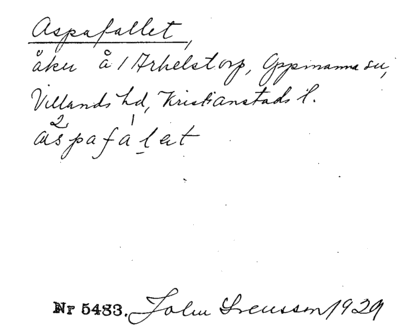 Aspafallet,
åker å 1 Arkelstorp, Oppmanna sn,
Villands hd, Kristianstads l.
aspafalet
Nr 5483. John Svensson 1929